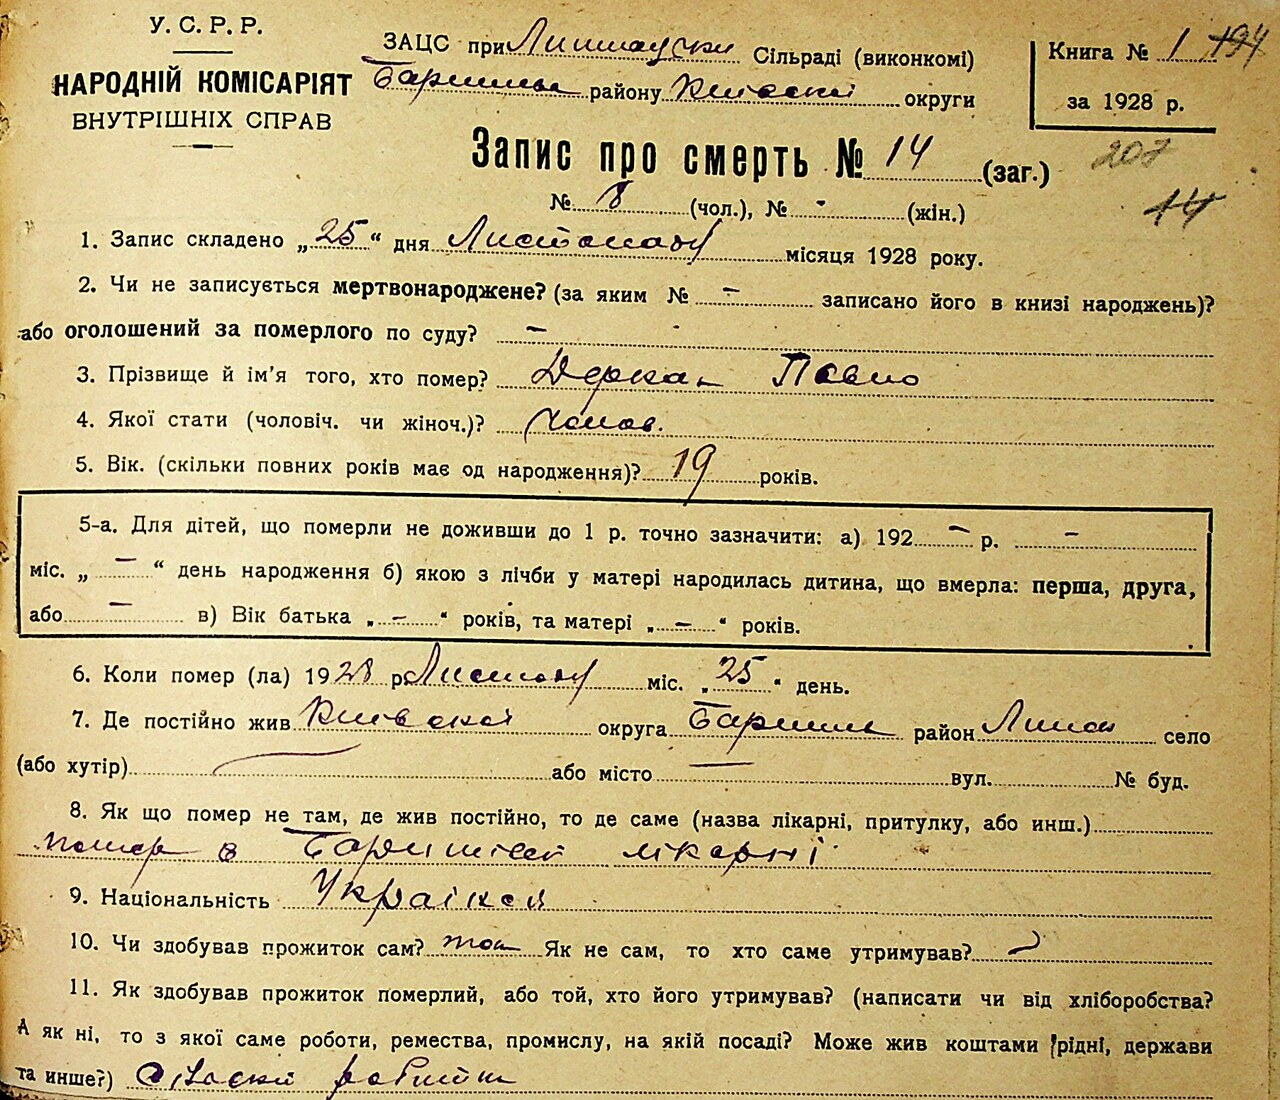 У. С. Р. Р.
НАРОДНІЙ КОМІСАРІЯТ
ВНУТРІШНІХ СПРАВ
ЗАЦС при Сільраді (виконкомі)
району округи
Книга № 1 194
за 1928 р.
Запис про смерть № 14 (заг.)
207
№ 8 (чол.), № - (жін.)
14
1. Запис складено „25“ дня Листопаду місяця 1928 року.
2. Чи не записується мертвонароджене? (за яким № – записано його в книзі народжень)?
або оголошений за померлого по суду? –
3. Прізвище й ім'я того, хто помер? Деркач Павло
4. Якої стати (чоловіч. чи жіноч.)? Чолов.
5. Вік. (скільки повних років має од народження)? 19 років.
5-а. Для дітей, що померли не доживши до 1 р. точно зазначити: а) 192 – р. –
міс. „ – “ день народження б) якою з лічби у матері народилась дитина, що вмерла: перша, друга,
або – в) Вік батька „ – “ років, та матері „ – “ років.
6. Коли помер (ла) 1928 р. Листопаду міс. „25“ день.
7. Де постійно жив Київської округа район село
(або хутір) або місто — вул. № буд.
8. Як що помер не там, де жив постійно, то де саме (назва лікарні, притулку, або инш.)
помер в лікарні
9. Національність
10. Чи здобував прожиток сам? Як не сам, то хто саме утримував?
11. Як здобував прожиток померлий, або той, хто його утримував? (написати чи від хліборобства?
А як ні, то з якої саме роботи, ремества, промислу, на якій посаді? Може жив коштами рідні, держави
та инше?)